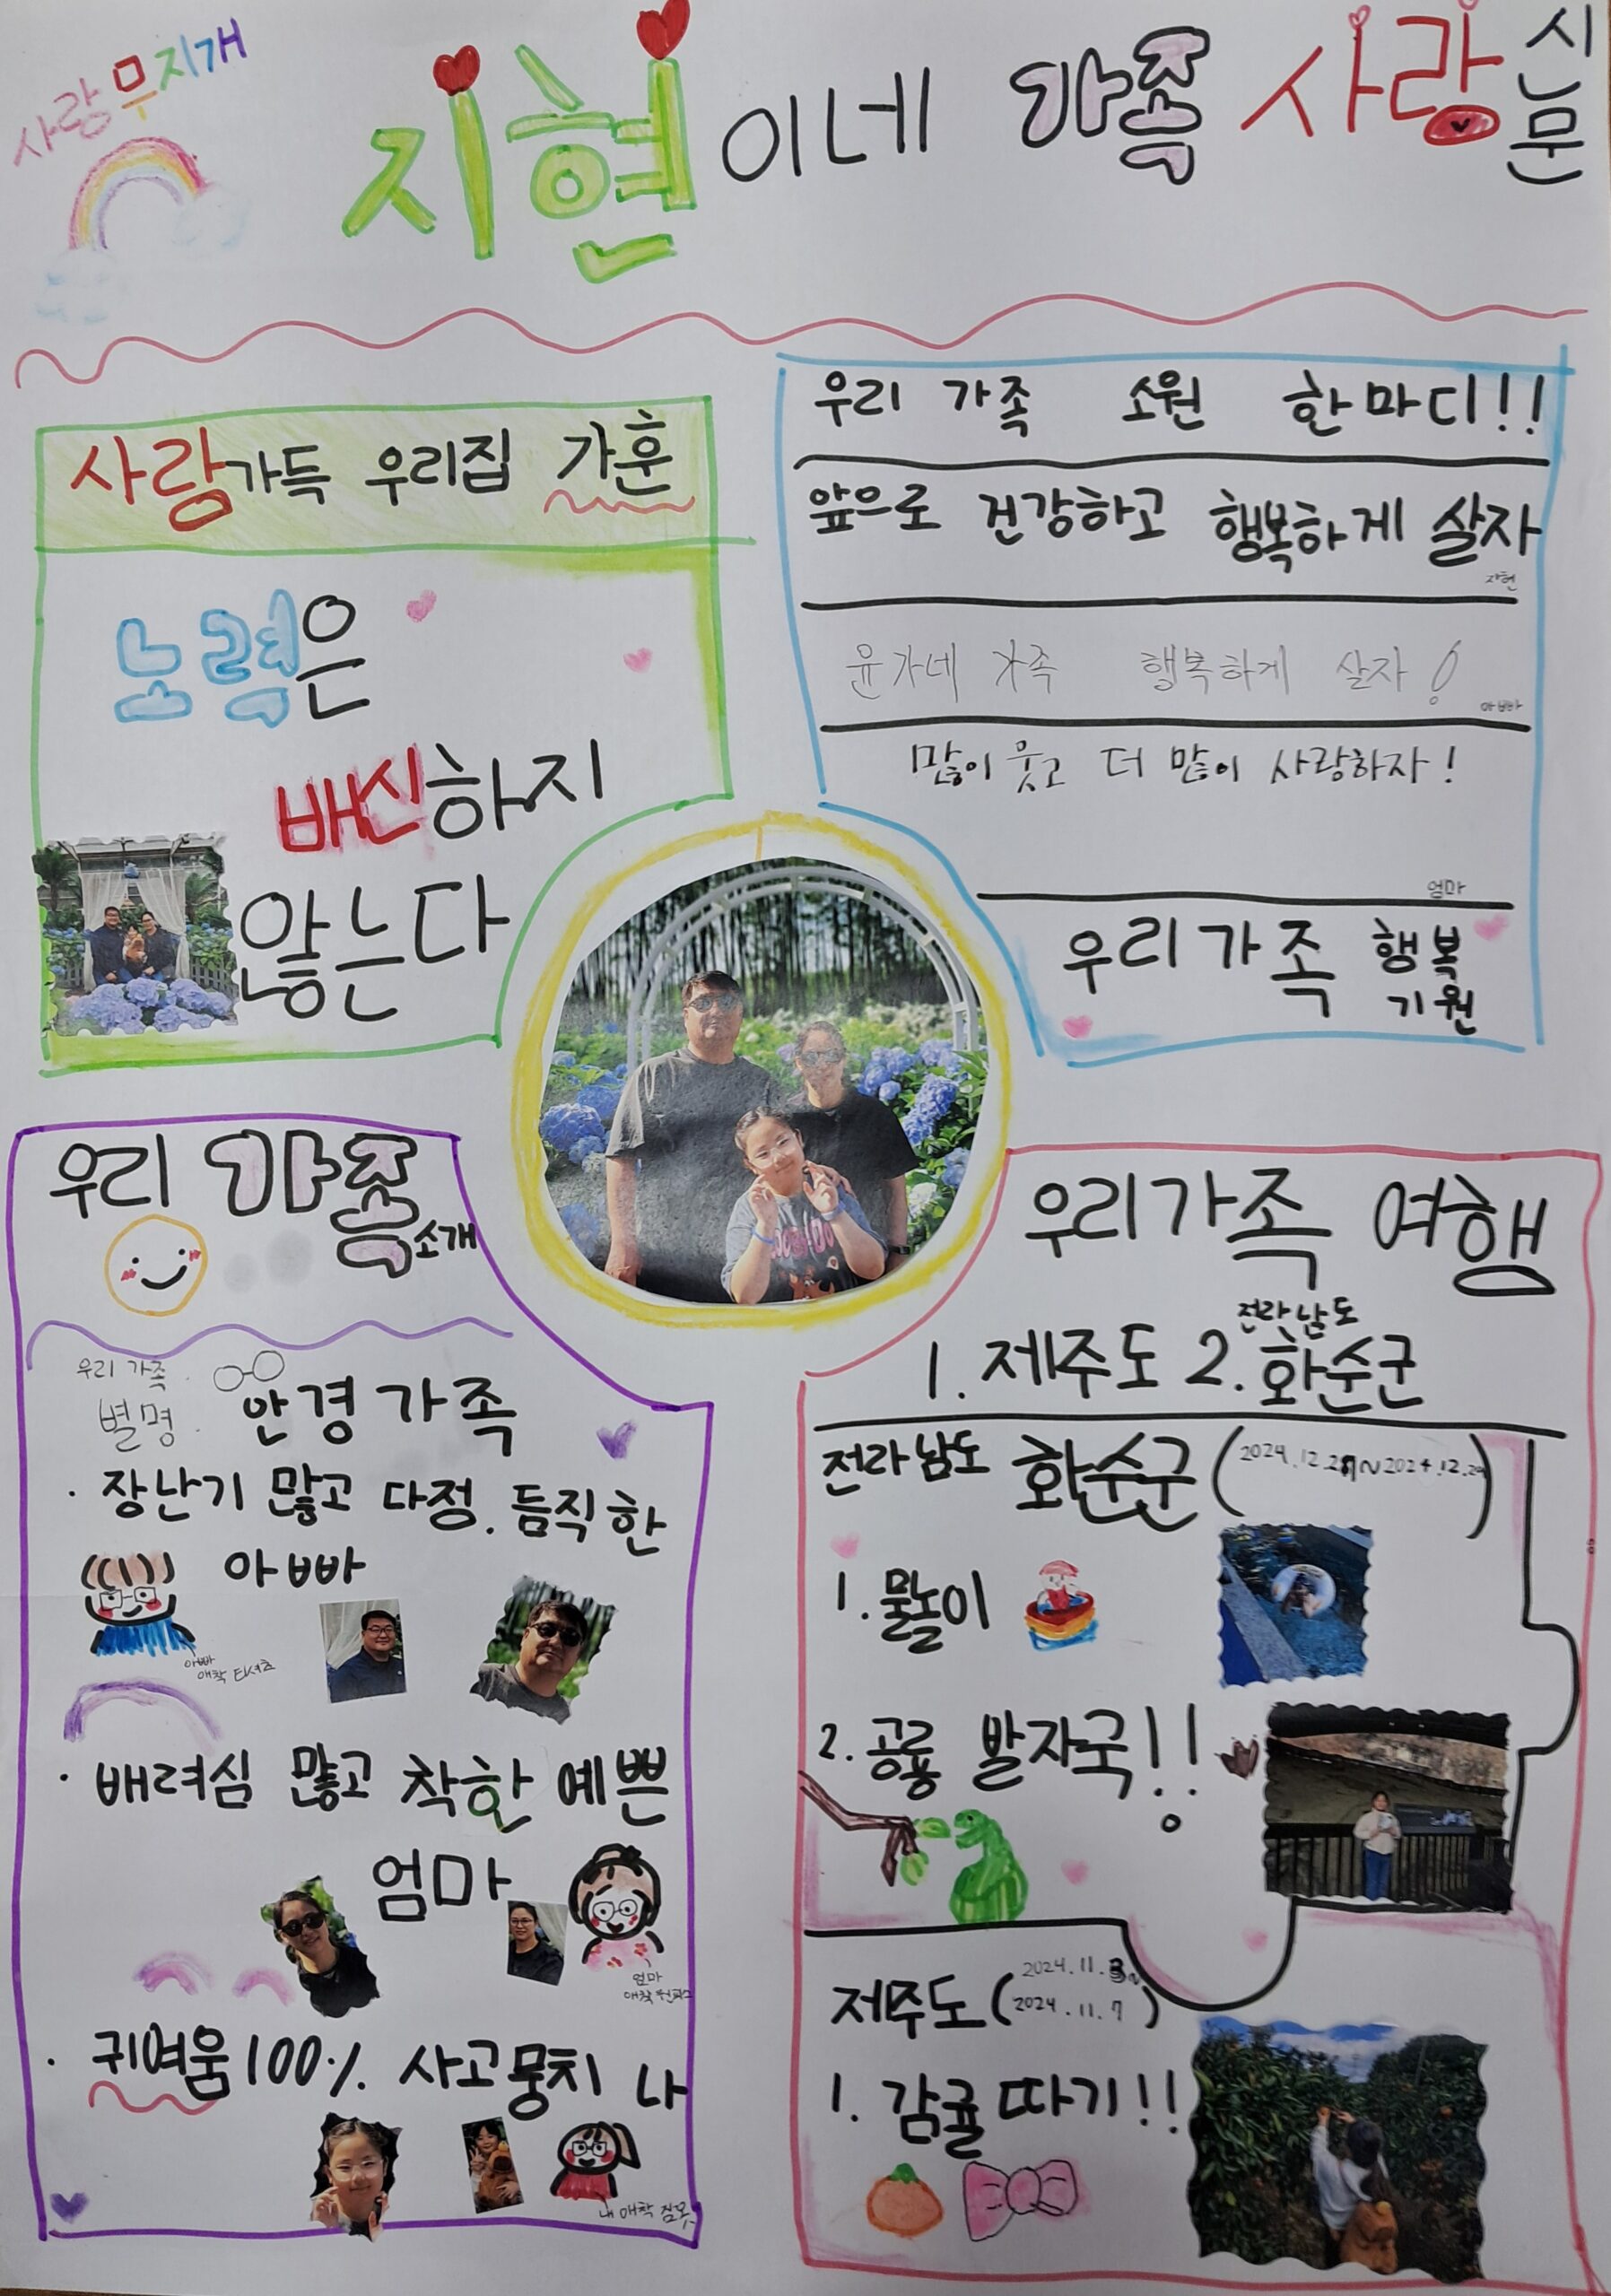 사랑무지개
지현이네 가족 사랑 신문
사랑가득 우리집 가훈
노력은
배신하지
않는다
우리 가족 소원 한마디!!
앞으로 건강하고 행복하게 살자
지현
윤가네 가족 행복하게 살자!
아빠
많이 웃고 더 많이 사랑하자!
엄마
우리가족 행복
기원
우리 가족 소개
우리 가족
별명
안경 가족
· 장난기 많고 다정. 듬직한
아빠
아빠
애착 티셔츠
· 배려심 많고 착한 예쁜
엄마
엄마
애착 원피스
· 귀여움 100% 사고뭉치 나
내 애착 잠옷
우리가족 여행
1. 제주도 2. 전라남도 화순군
전라남도 화순군 (2024.12.27~2024.12.29)
1. 물놀이
2. 공룡 발자국!!
제주도 (2024.11.3~
2024.11.7)
1. 감귤 따기!!